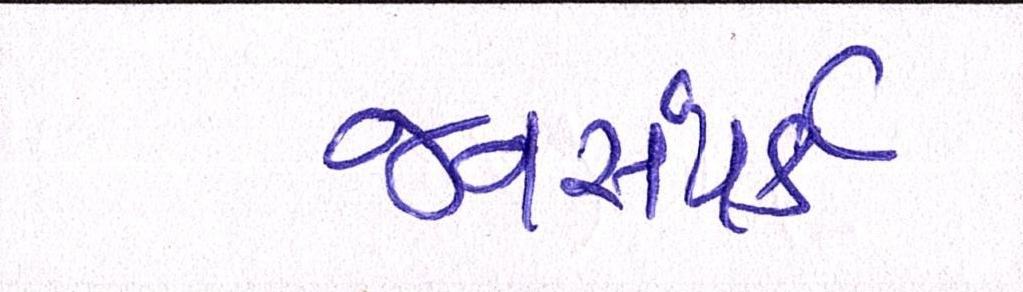 જનસંપર્ક